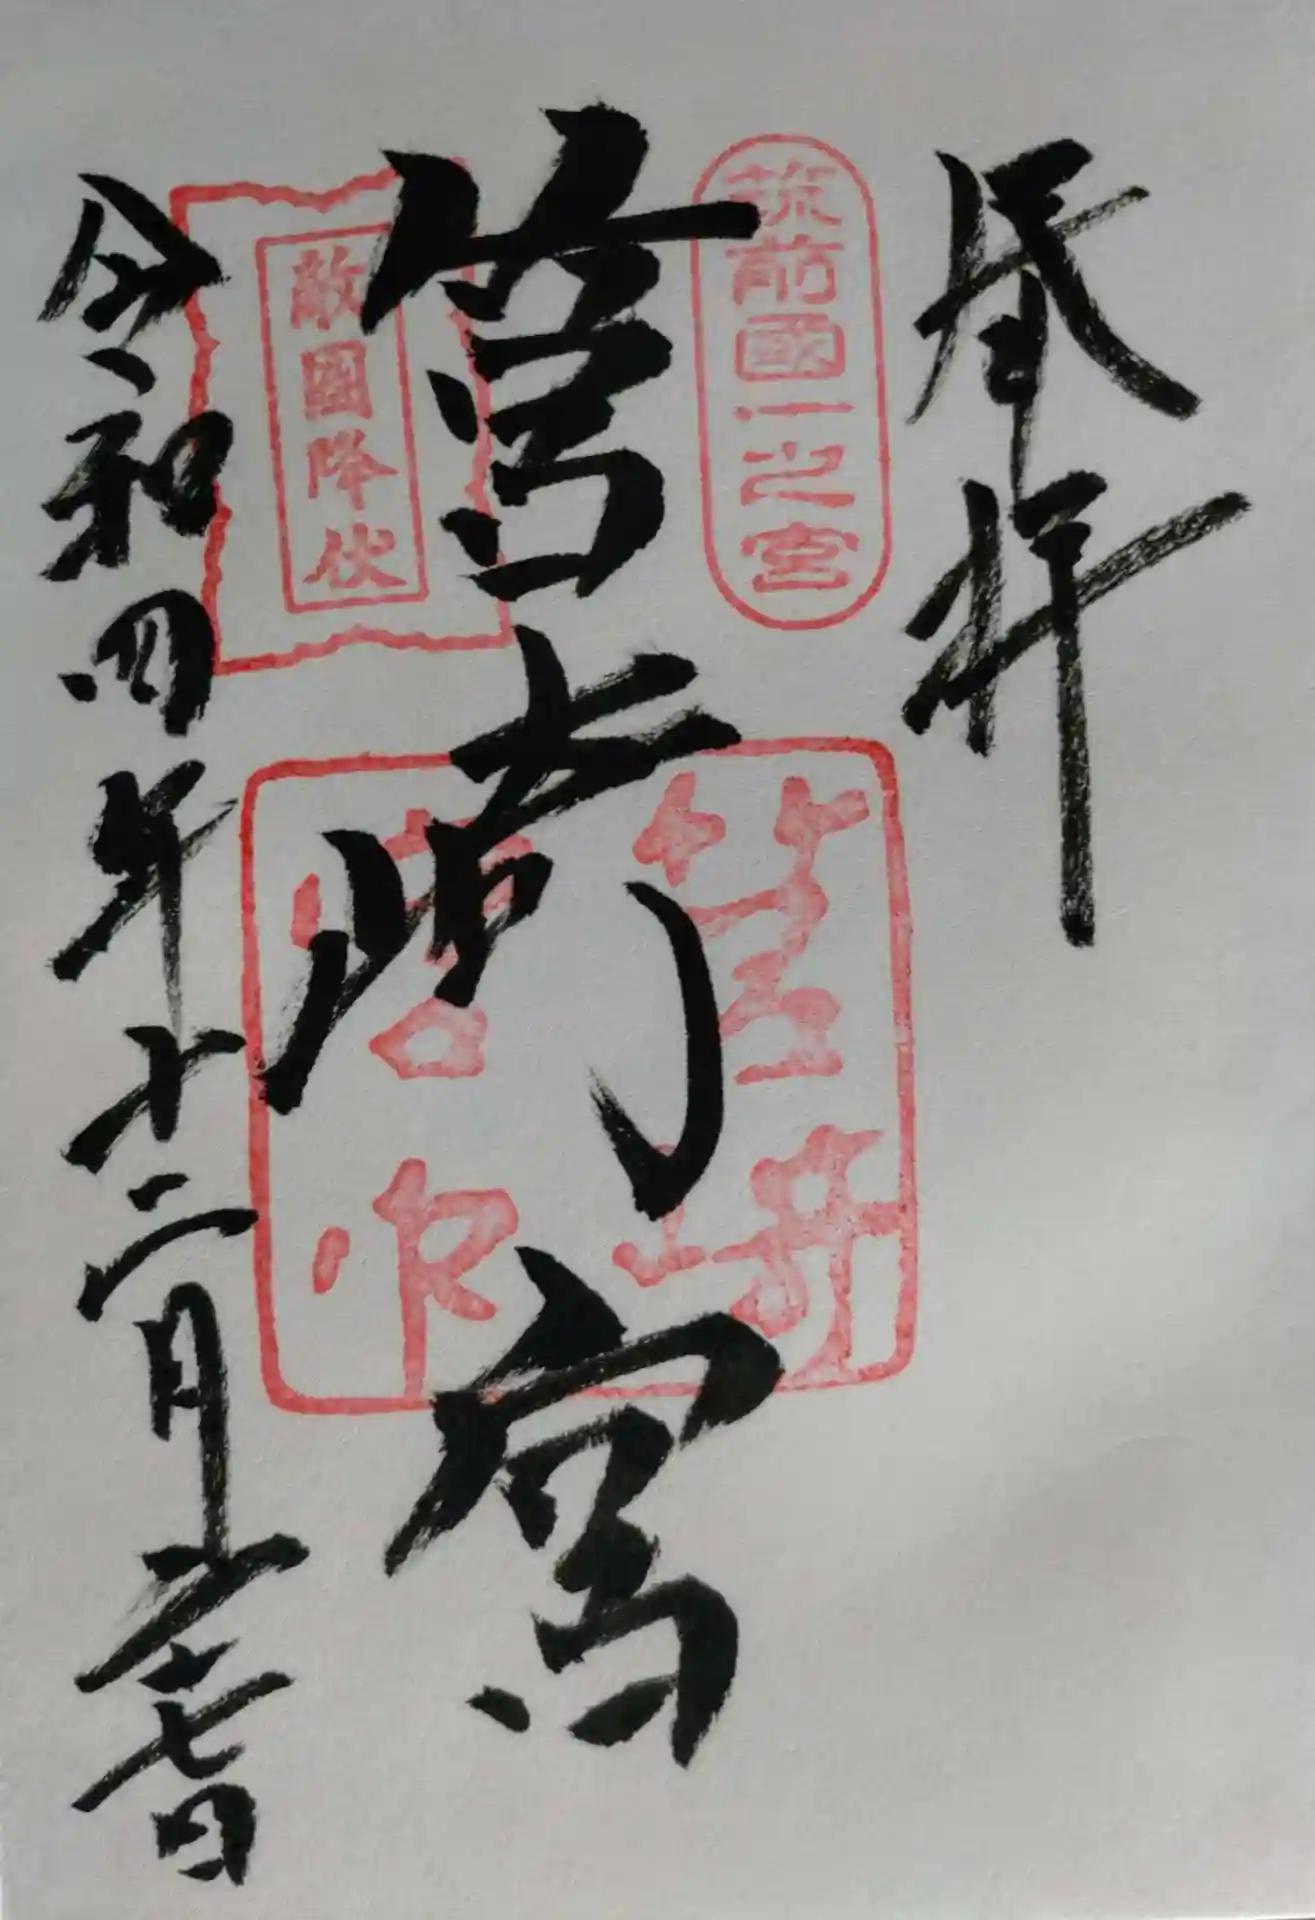 奉拝
筑前國一之宮
筥崎宮
敵國降伏
筥崎
宮印
令和四年十二月二十七日